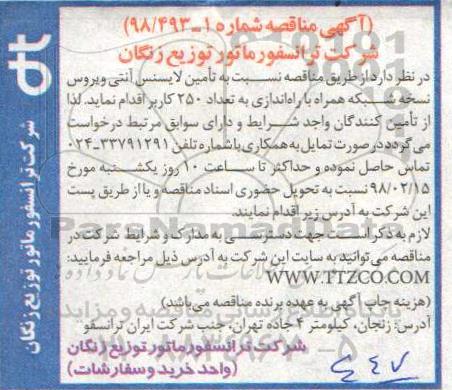 (آگهی مناقصه شماره ۱-۹۸/۴۹۳)
شرکت ترانسفورماتور توزیع زنگان
در نظر دارد از طریق مناقصه نسبت به تأمین لایسنس آنتی ویروس
نسخه شبکه همراه با راه‌اندازی به تعداد ۲۵۰ کاربر اقدام نماید. لذا
از تأمین کنندگان واجد شرایط و دارای سوابق مرتبط درخواست
می گردد در صورت تمایل به همکاری با شماره تلفن ۳۳۷۹۱۲۹۱-۰۲۴
تماس حاصل نموده و حداکثر تا ساعت ۱۰ روز یکشنبه مورخ
۹۸/۰۲/۱۵ نسبت به تحویل حضوری اسناد مناقصه و یا از طریق پست
این شرکت به آدرس زیر اقدام نمایند.
لازم به ذکر است جهت دسترسی به مدارک و شرایط شرکت در
مناقصه می توانید به سایت این شرکت به آدرس ذیل مراجعه فرمایید:
WWW.TTZCO.COM
(هزینه چاپ آگهی به عهده برنده مناقصه می‌باشد)
آدرس: زنجان، کیلومتر ۴ جاده تهران، جنب شرکت ایران ترانسفو
شرکت ترانسفورماتور توزیع زنگان
(واحد خرید و سفارشات)
dt
شرکت ترانسفورماتور توزیع زنگان
ParsNamadData